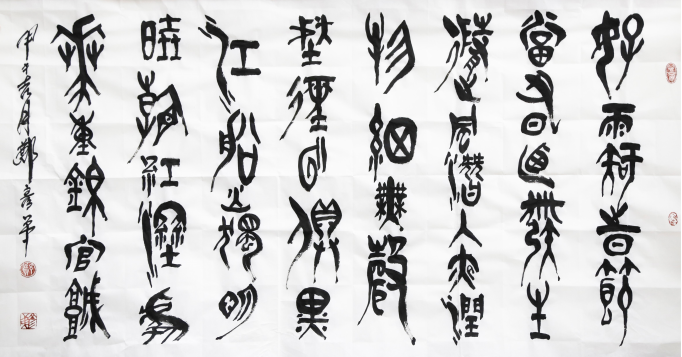 好雨知時節
當春乃發生
隨風潛入夜潤
物細無聲
野徑雲俱黑
江船火獨明
曉看紅濕處
花重錦官城
甲午月鄭彥